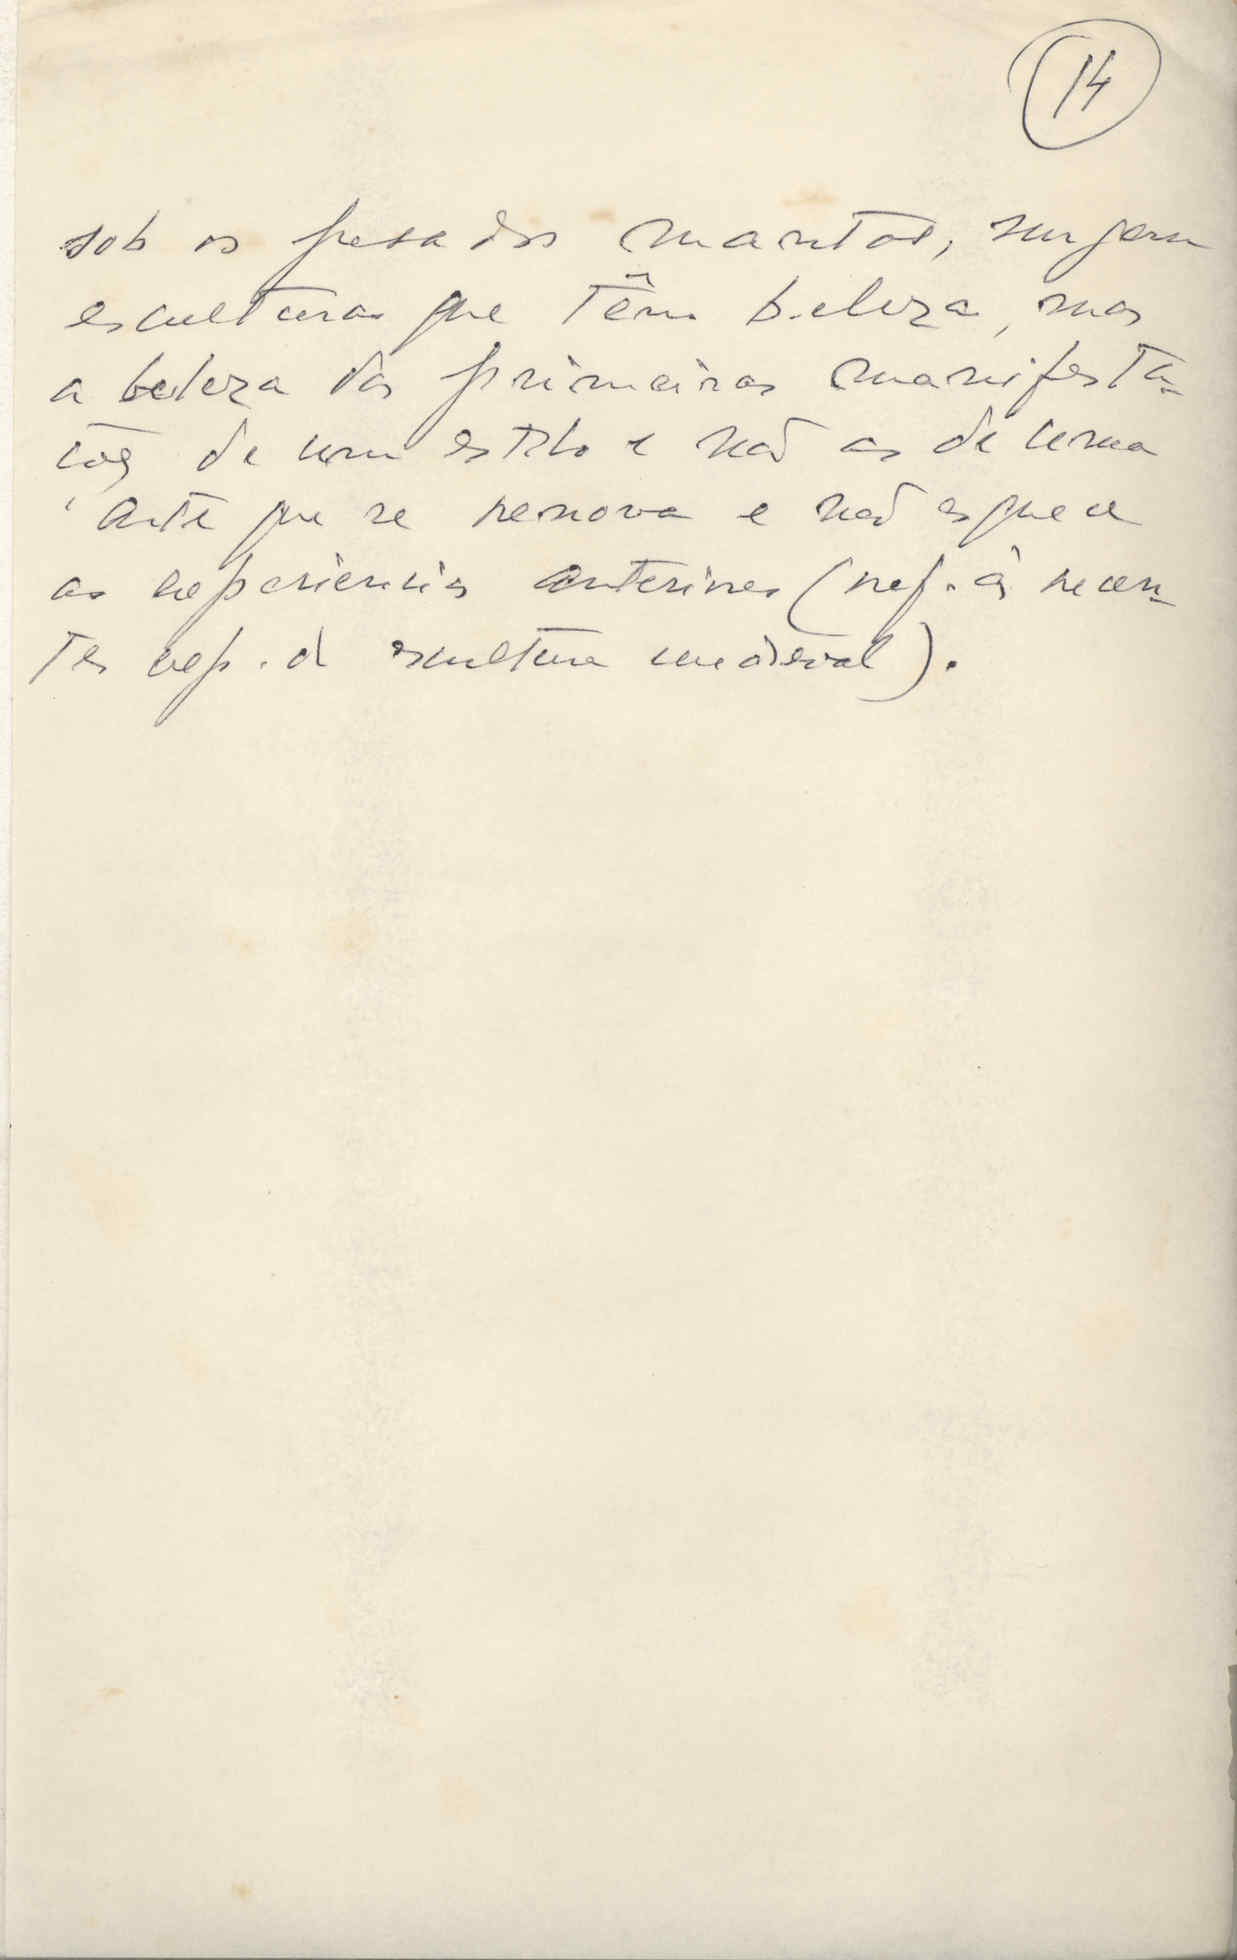 14
sob os pesados mantos, surgem
esculturas que têm beleza, mas
a beleza das primeiras manifesta-
ções de um estilo e não as de uma
arte que se renova e não esquece
as experiencias anteriores (ref. às recen-
tes exp. de escultura medieval).